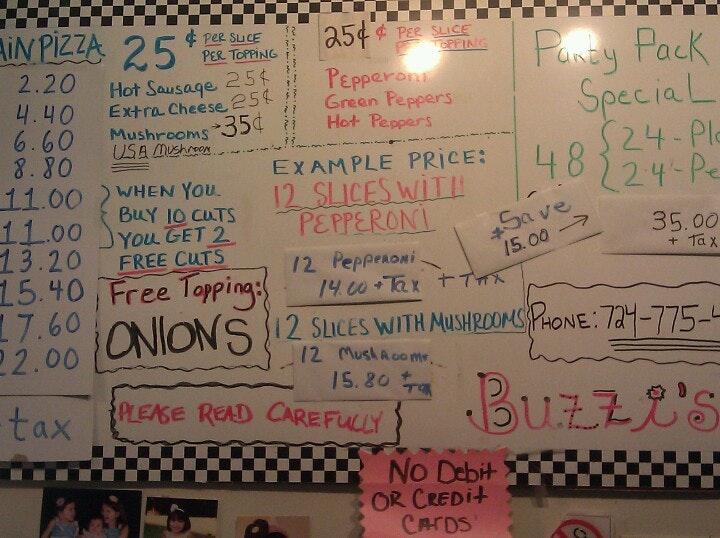 AIN PIZZA
2.20
4.40
6.60
8.80
11.00
11.00
13.20
15.40
17.60
22.00
tax
25¢ PER SLICE
PER TOPPING
Hot Sausage 25¢
Extra Cheese 25¢
Mushrooms → 35¢
USA Mushroom
WHEN YOU
BUY 10 CUTS
YOU GET 2
FREE CUTS
Free Topping:
ONIONS
PLEASE READ CAREFULLY
25¢ ¢ PER SLICE
PER TOPPING
Pepperoni
Green Peppers
Hot Peppers
EXAMPLE PRICE:
12 SLICES WITH
PEPPERONI
12 Pepperoni
14.00 + Tax + Tax
12 SLICES WITH MUSHROOMS
12 Mushrooms
15.80 +
Tax
Party Pack
Special
48 { 24 - Pla
24 - Pe
+ Save
15.00 →
35.00
+ Tax
PHONE: 724-775-4
Buzzi's
NO Debit
OR CREDit
CARDS